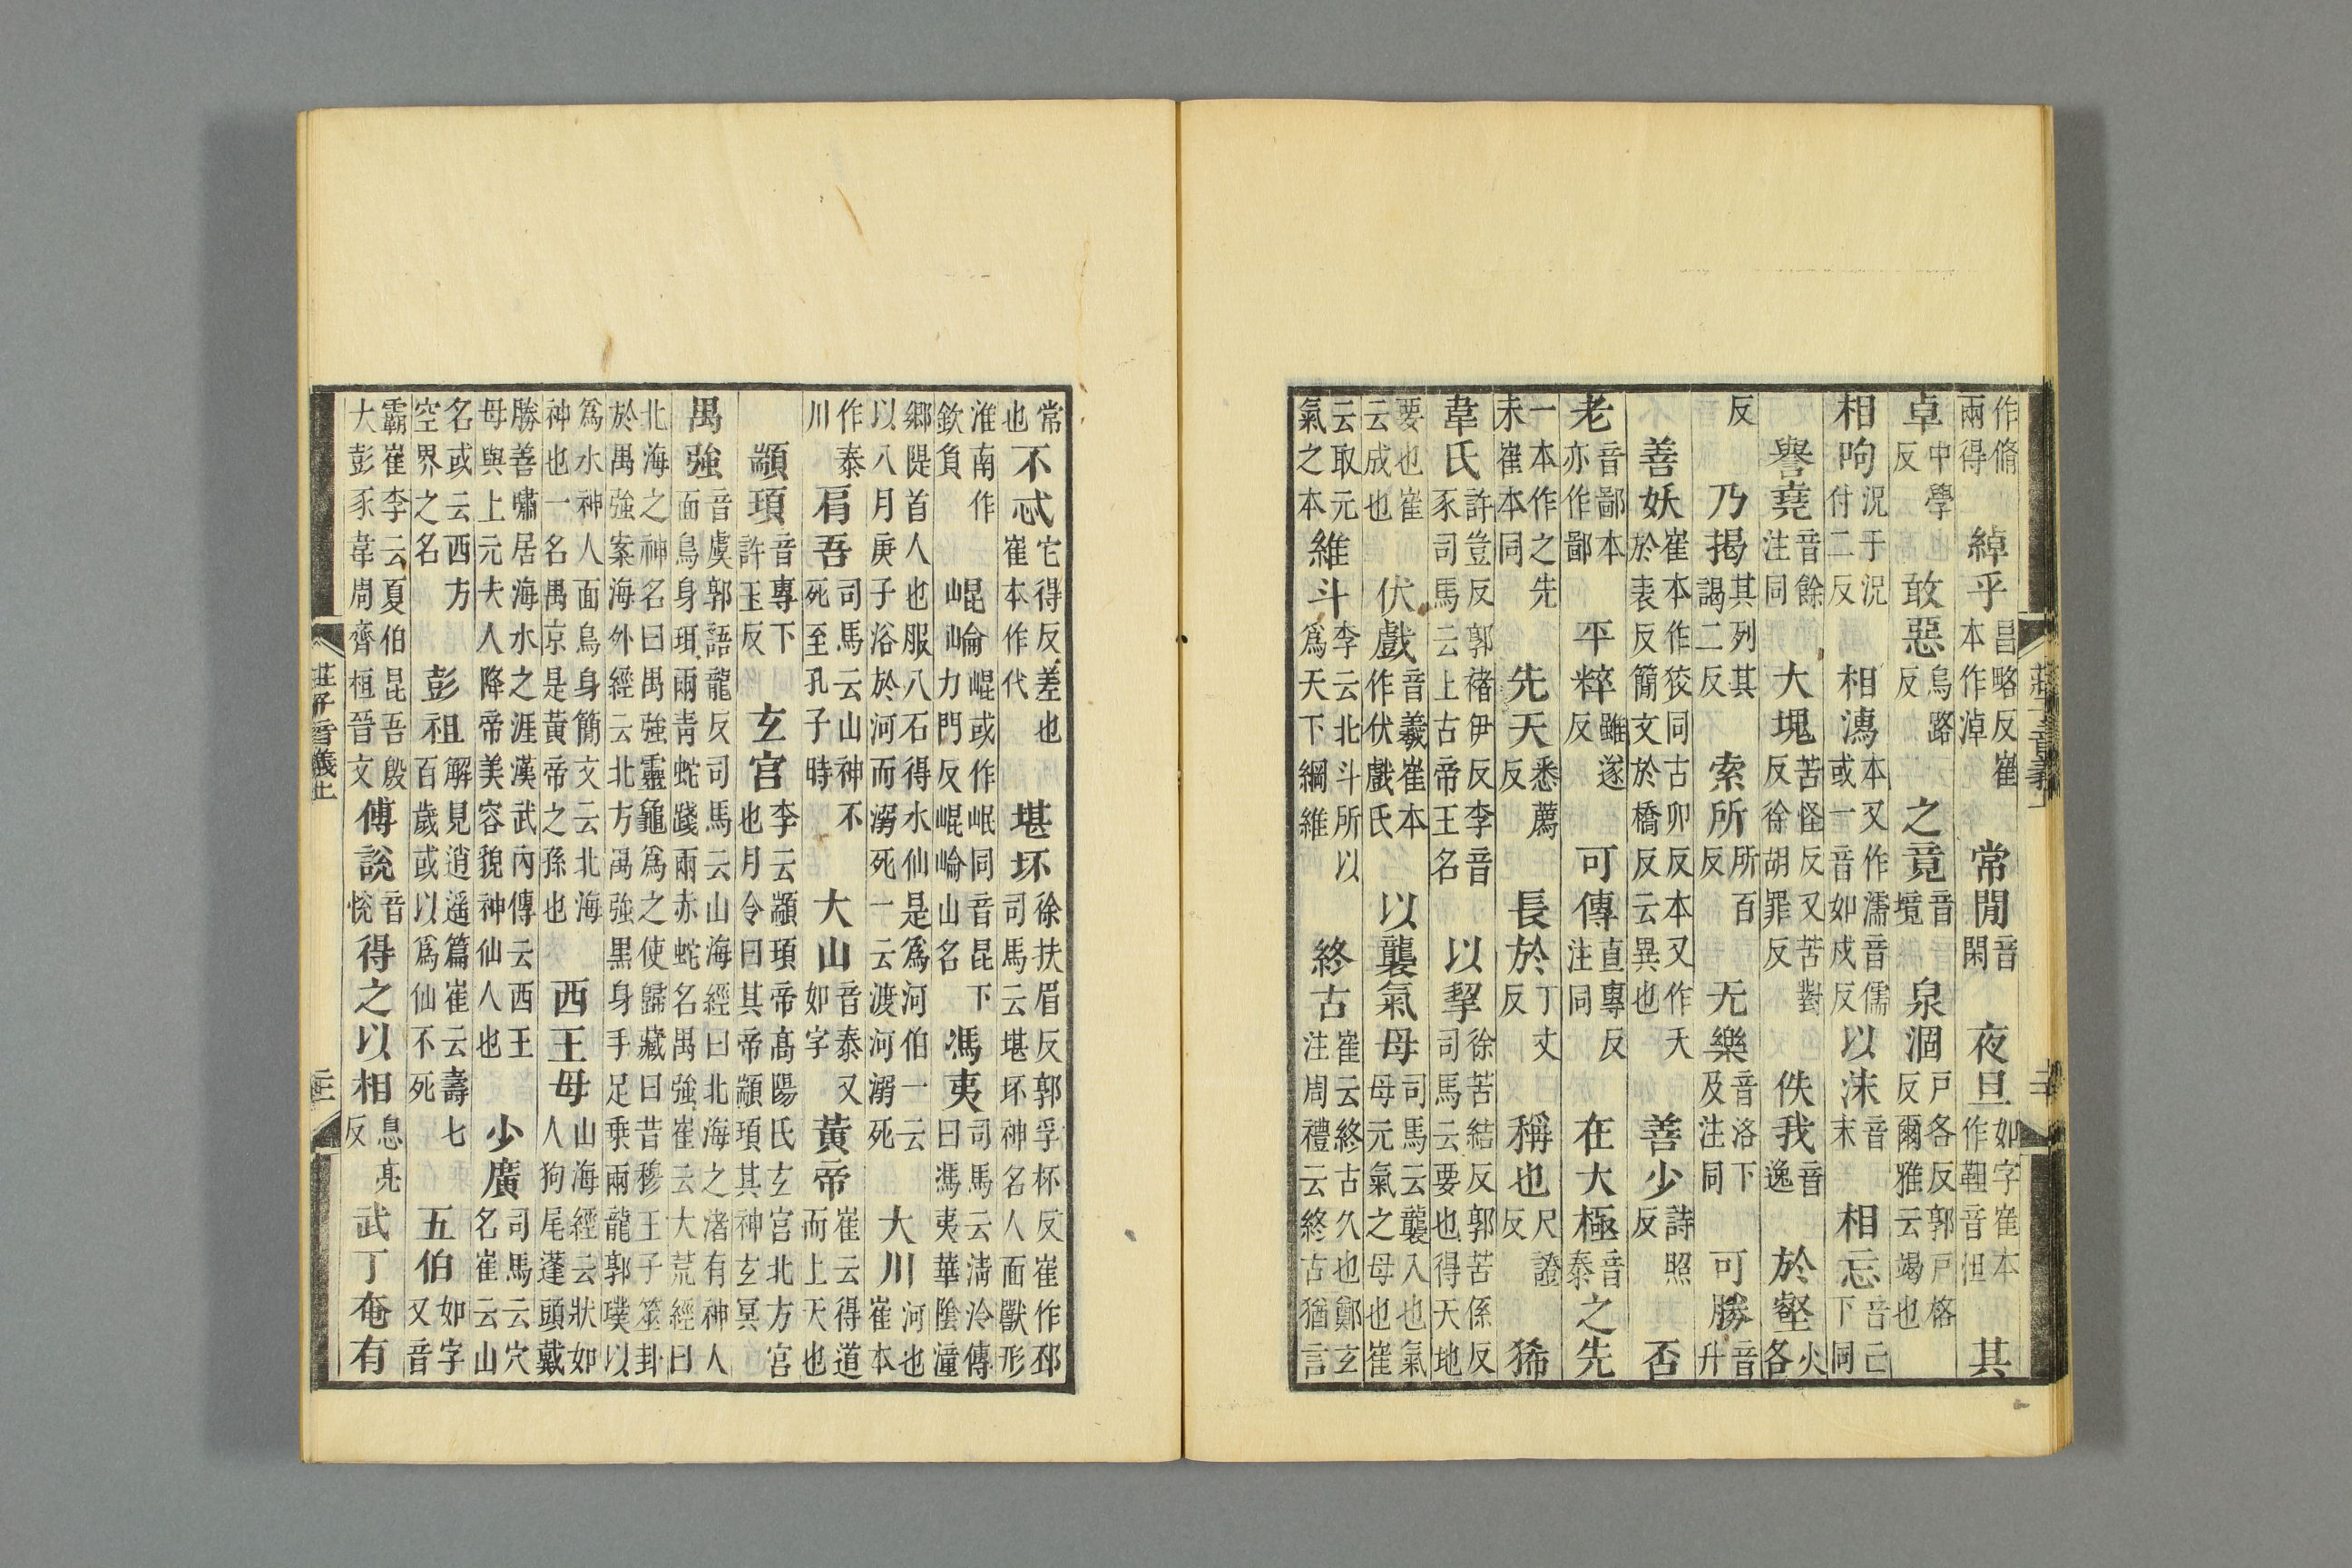 作脩兩得 綽乎昌略反崔本作淖 常閒音閑 夜旦如字崔本作靼音怛 其
卓中學反 敢惡烏路反 之竟音境 泉涸戶各反郭戶格反爾雅云竭也
相呴況于況付二反 相濡本又作濡音儒或一音如戍反 以沫音末 相忘音亡下同
譽堯音餘注同 大塊苦怪反又苦對反徐胡罪反 佚我音逸 於壑火各
反 乃揭其列其謁二反 索所所百反 无樂音洛下及注同 可勝音升
善妖崔本作狡同古卯反本又作夭於表反簡文於橋反云異也 善少詩照反 否
老音鄙本亦作鄙 平粹雖遂反 可傳直專反注同 在大極音泰 之先
一本作之先未崔本同 先天悉薦反 長於丁丈反 稱也尺證反 狶
韋氏許豈反郭褚伊反李音豕司馬云上古帝王名 以挈徐苦結反郭苦係反司馬云要也得天地
要也崔云成也 伏戲音羲崔本作伏戲氏 以襲氣母司馬云襲入也氣母元氣之母也崔
云取元氣之本 維斗李云北斗所以爲天下綱維 終古崔云終古久也鄭玄注周禮云終古猶言
常也 不忒它得反差也崔本作代 堪坏徐扶眉反郭孚杯反崔作邳司馬云堪坏神名人面獸形
淮南作欽負 崐崘崐或作岷同音昆下力門反崐崘山名 馮夷司馬云淸泠傳曰馮夷華陰潼
鄉隄首人也服八石得水仙是爲河伯一云以八月庚子浴於河而溺死一云渡河溺死 大川河也崔本
作泰川 肩吾司馬云山神不死至孔子時 大山音泰又如字 黃帝崔云得道而上天也
顓頊音專下許玉反 玄宮李云顓頊帝高陽氏玄宮北方宮也月令曰其帝顓頊其神玄冥
禺強音虞郭語龍反司馬云山海經曰北海之渚有神人面鳥身珥兩靑蛇踐兩赤蛇名禺強崔云大荒經曰
北海之神名曰禺強靈龜爲之使歸藏曰昔穆王子筮卦於禺強案海外經云北方禺強黑身手足乘兩龍郭璞以
爲水神人面鳥身簡文云北海神也一名禺京是黃帝之孫也 西王母山海經云狀如人狗尾蓬頭戴
勝善嘯居海水之涯漢武內傳云西王母與上元夫人降帝美容貌神仙人也 少廣司馬云穴名崔云山
名或云西方空界之名 彭祖解見逍遙篇崔云壽七百歲或以爲仙不死 五伯如字又音
霸崔李云夏伯昆吾殷大彭豕韋周齊桓晉文 傅說音悅 得之以相息亮反 武丁奄有
莊子音義上